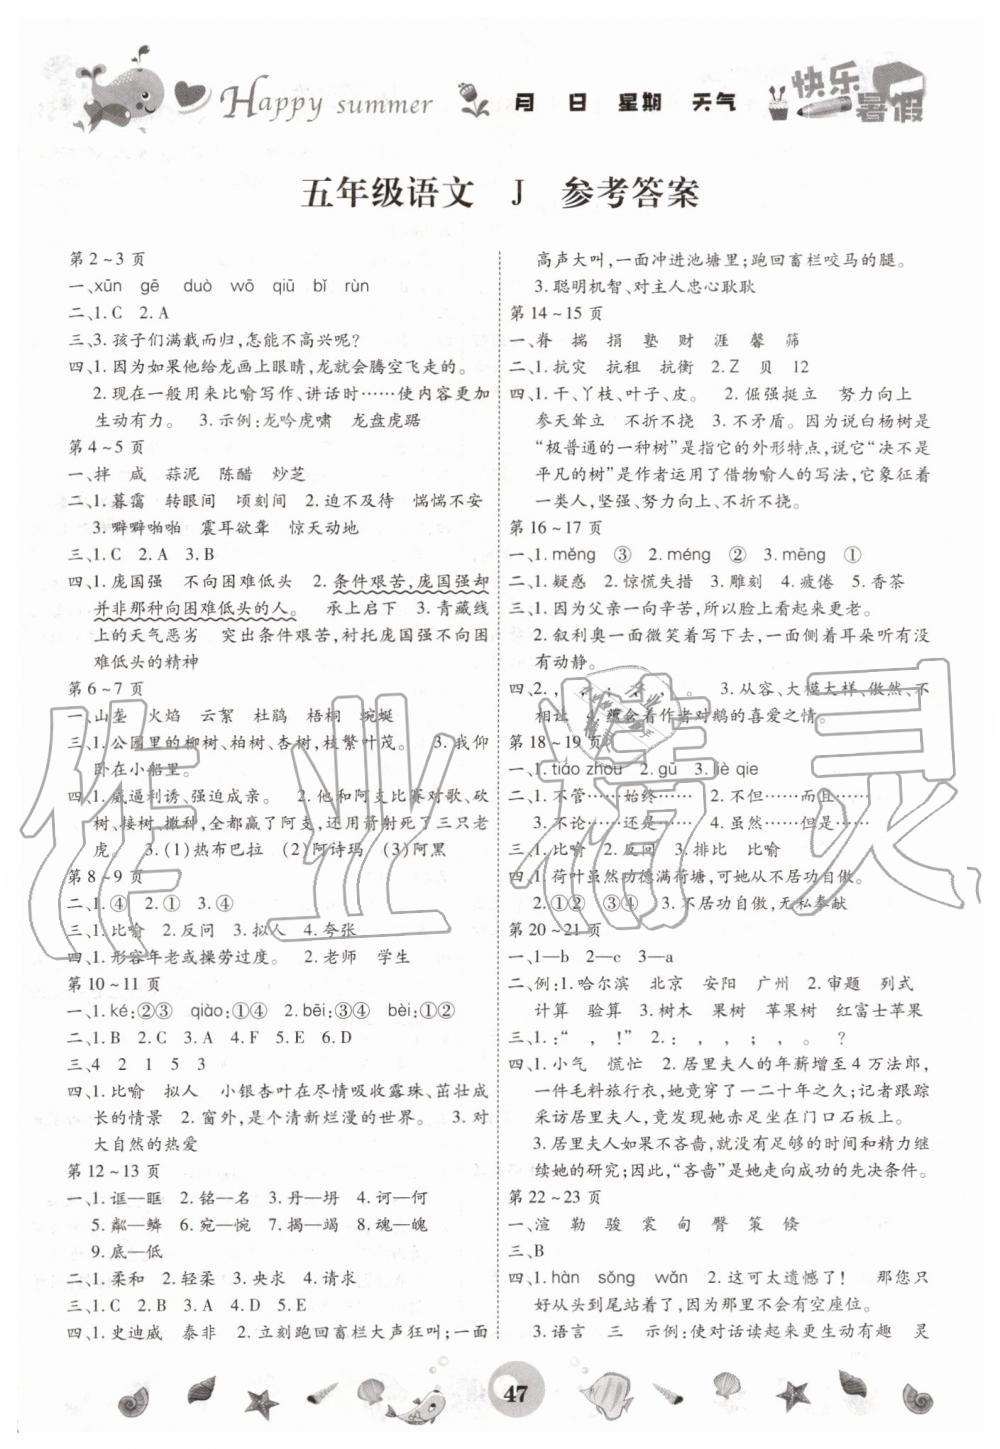 Happy summer
月 日 星期 天气
快乐暑假
五年级语文 J 参考答案
第2~3页
一、xūn gē duò wō qiū bǐ rùn
二、1.C 2.A
三、3.孩子们满载而归,怎能不高兴呢?
四、1.因为如果他给龙画上眼睛,龙就会腾空飞走的。
2.现在一般用来比喻写作、讲话时……使内容更加
生动有力。 3.示例:龙吟虎啸 龙盘虎踞
第4~5页
一、拌 咸 蒜泥 陈醋 炒芝
二、1.暮霭 转眼间 顷刻间 2.迫不及待 惴惴不安
3.噼噼啪啪 震耳欲聋 惊天动地
三、1.C 2.A 3.B
四、1.庞国强 不向困难低头 2.条件艰苦,庞国强却
并非那种向困难低头的人。 承上启下 3.青藏线
上的天气恶劣 突出条件艰苦,衬托庞国强不向困
难低头的精神
第6~7页
一、山垄 火焰 云絮 杜鹃 梧桐 蜿蜒
三、1.公园里的柳树、柏树、杏树,枝繁叶茂。 3.我仰
卧在小船里。
四、1.威逼利诱、强迫成亲。 2.他和阿支比赛对歌、砍
树、接树、撒种,全都赢了阿支,还用箭射死了三只老
虎。 3.(1)热布巴拉 (2)阿诗玛 (3)阿黑
第8~9页
二、1.④ 2.① 3.④
三、1.比喻 2.反问 3.拟人 4.夸张
四、1.形容年老或操劳过度。 2.老师 学生
第10~11页
一、1.ké:②③ qiào:①④ 2.bēi:③④ bèi:①②
二、1.B 2.C 3.A 4.F 5.E 6.D
三、4 2 1 5 3
四、1.比喻 拟人 小银杏叶在尽情吸收露珠、茁壮成
长的情景 2.窗外,是个清新烂漫的世界。 3.对
大自然的热爱
第12~13页
一、1.诓—眶 2.铭—名 3.丹—坍 4.诃—何
5.粼—鳞 6.宛—惋 7.揭—竭 8.魂—魄
9.底—低
二、1.柔和 2.轻柔 3.央求 4.请求
三、1.C 2.B 3.A 4.D 5.E
四、1.史迪威 泰非 2.立刻跑回畜栏大声狂叫;一面
高声大叫,一面冲进池塘里;跑回畜栏咬马的腿。
3.聪明机智、对主人忠心耿耿
第14~15页
一、脊 揣 捐 塾 财 涯 馨 筛
二、1.抗灾 抗租 抗衡 2.Z 贝 12
四、1.干、丫枝、叶子、皮。 2.倔强挺立 努力向上
参天耸立 不折不挠 3.不矛盾。因为说白杨树是
“极普通的一种树”是指它的外形特点,说它“决不是
平凡的树”是作者运用了借物喻人的写法,它象征着
一类人,坚强、努力向上、不折不挠。
第16~17页
一、1.měng ③ 2.méng ② 3.mēng ①
二、1.疑惑 2.惊慌失措 3.雕刻 4.疲倦 5.香茶
三、1.因为父亲一向辛苦,所以脸上看起来更老。
2.叙利奥一面微笑着写下去,一面侧着耳朵听有没
有动静。
四、2. , , ; , 。 3.从容、大模大样、傲然、不
相让 4.蕴含着作者对鹅的喜爱之情。
第18~19页
一、1.tiáo zhōu 2.gū 3.liè qie
二、1.不管……始终…… 2.不但……而且……
3.不论……还是…… 4.虽然……但是……
三、1.比喻 2.反问 3.排比 比喻
四、1.荷叶虽然功德满荷塘,可她从不居功自傲。
2.①② ③④ 3.不居功自傲,无私奉献
第20~21页
一、1—b 2—c 3—a
二、例:1.哈尔滨 北京 安阳 广州 2.审题 列式
计算 验算 3.树木 果树 苹果树 红富士苹果
三、1.:“ , !” 2. : , ; , 。
四、1.小气 慌忙 2.居里夫人的年薪增至4万法郎,
一件毛料旅行衣,她竟穿了一二十年之久;记者跟踪
采访居里夫人,竟发现她赤足坐在门口石板上。
3.居里夫人如果不吝啬,就没有足够的时间和精力继
续她的研究;因此,“吝啬”是她走向成功的先决条件。
第22~23页
一、渲 勒 骏 裳 甸 臀 策 倏
三、B
四、1.hàn sǒng wǎn 2.这可太遗憾了! 那您只
好从头到尾站着了,因为那里不会有空座位。
3.语言 三 示例:使对话读起来更生动有趣 灵
47
作业精灵